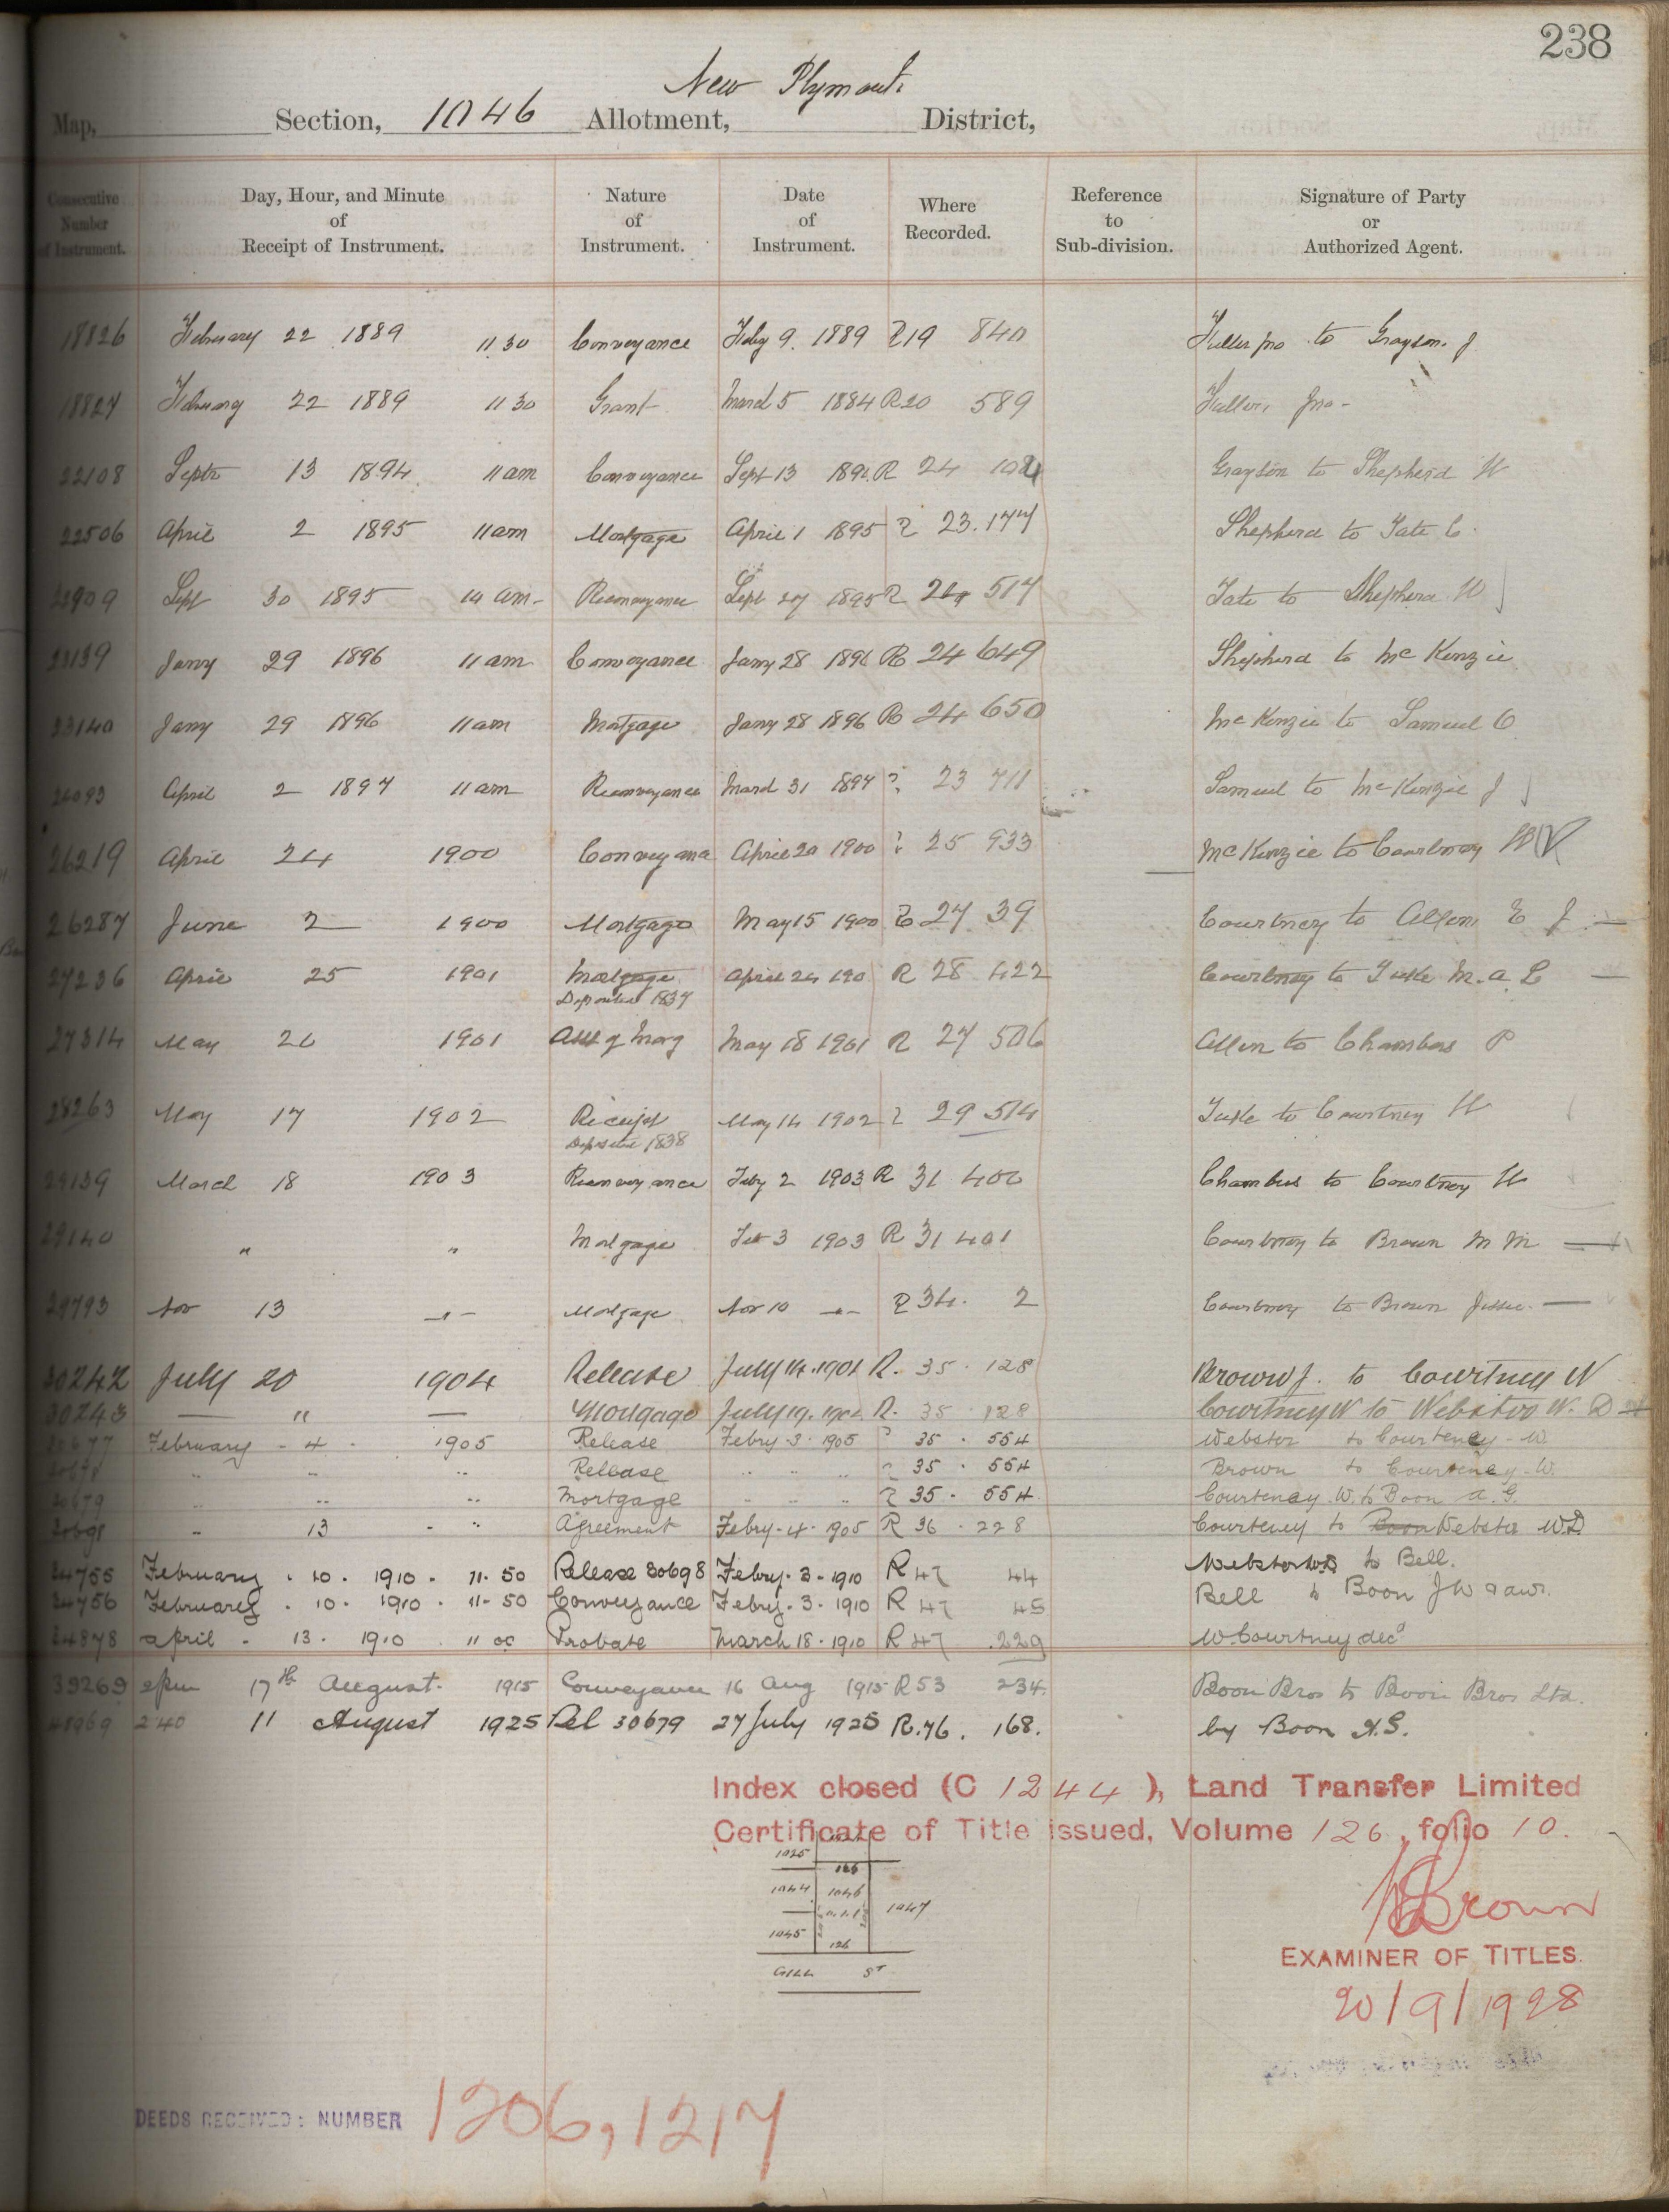 238
New Plymouth
Map, Section, 1046 Allotment, District,
Consecutive Number of Instrument. Day, Hour, and Minute of Receipt of Instrument. Nature of Instrument. Date of Instrument. Where Recorded. Reference to Sub-division. Signature of Party or Authorized Agent.
18826 February 22 1889 11.30 Conveyance Feby 9. 1889 R19 840 Fuller Jno to Grayson. J
18827 February 22 1889 11 30 Grant March 5 1884 R20 589 Fuller, Jno-
22108 Septr 13 1894 11am Conveyance Sept 13 R 24 Grayson to Shepherd W
22506 April 2 1895 11am Mortgage April 1 1895 R 23.177 Shepherd to Tate C.
Sept 30 1895 11 am- Reconveyance Sept 27 1895 R 24 517 Tate to Shepherd W
23139 Jany 29 1896 11am Conveyance Jany 28 1896 R 24 649 Shepherd to McKenzie
23140 Jany 29 1896 11am Mortgage Jany 28 1896 R 24 650 McKenzie to Samuel O
April 2 1897 11am Reconveyance March 31 1897 R 23 711 Samuel to McKenzie J
26219 April 24 1900 Conveyance April 20 1900 R 25 933 McKenzie to Courtney W
26287 June 2 1900 Mortgage May 15 1900 R 27 39 Courtney to Allen, E J —
27236 April 25 1901 Mortgage April 24 190 R 28 422 Courtney to Tuke M. a. L —
Deposited 1837
27314 May 20 1901 Ass of Morg May 18 1901 R 27 506 Allen to Chambers P
28263 May 17 1902 Receipt May 14 1902 R 29 514 Tuke to Courtney W
Deposited 1838
29139 March 18 1903 Reconveyance Feby 2 1903 R 31 400 Chambers to Courtney W
29140 " " Mortgage Feb 3 1903 R 31 401 Courtney to Brown M M —
29793 Nov 13 -"- Mortgage Nov 10 -"- R 34. 2 Courtney to Brown Jessie. —
30242 July 20 1904 Release July 14. 1904 R. 35. 128 Brown J. to Courtney W
30243 — " — Mortgage July 19. 1904 R. 35. 128 Courtney W to Webster W. D
30677 February - 4 - 1905 Release Febry 3. 1905 R 35 . 554 Webster to Courteney - W.
30678 " " " Release " " " R 35 . 554 Brown to Courteney - W.
30679 " " " Mortgage " " " R 35 . 554. Courtenay W. to Boon A. G.
30698 " 13 - " Agreement Febry - 4 - 1905 R 36 . 228 Courteney to Boon Webster W.D.
34755 February . 10 . 1910 . 11. 50 Release 30698 Febry. 3 - 1910 R 47 44 Webster W.D to Bell.
34756 February . 10 . 1910 . 11- 50 Conveyance Febry. 3 . 1910 R 47 45 Bell to Boon J W & anr.
34878 april - 13 . 1910 . 11 00 Probate March 18 . 1910 R 47 .229 W Courtney decd
39269 17th August. 1915 Conveyance 16 Aug 1915 R53 234. Boon Bros to Boon Bros Ltd.
48969 2.40 11 August 1925 Rel 30679 27 July 1925 R.76. 168. by Boon A.G.
Index closed (C 1244), Land Transfer Limited
Certificate of Title issued, Volume 126, folio 10.
1025
126
1044 1046 1047
0.1.1
1045
126
GILL ST
Brown
EXAMINER OF TITLES.
20/9/1928
DEEDS RECEIVED: NUMBER 1206, 1217